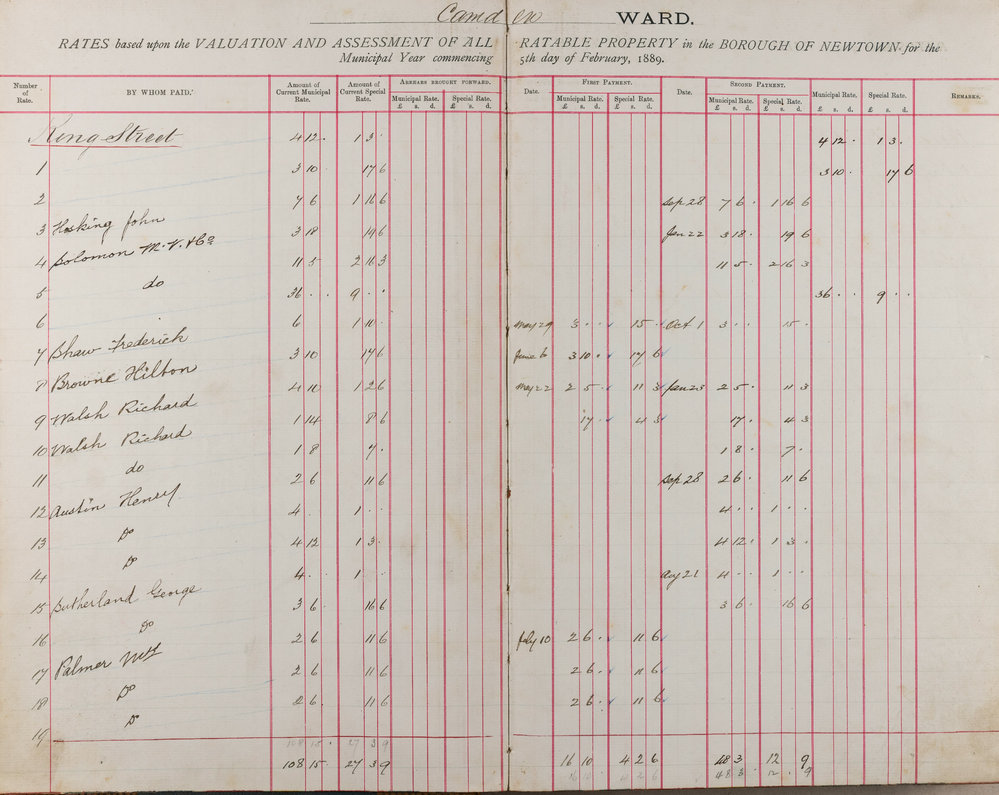 Camden WARD.
RATES based upon the VALUATION AND ASSESSMENT OF ALL RATABLE PROPERTY in the BOROUGH OF NEWTOWN for the
Municipal Year commencing 5th day of February, 1889.
Number of Rate. BY WHOM PAID. Amount of Current Municipal Rate. Amount of Current Special Rate. ARREARS BROUGHT FORWARD. Date. FIRST PAYMENT. Date. SECOND PAYMENT. Municipal Rate. Special Rate. REMARKS.
Municipal Rate. Special Rate. Municipal Rate. Special Rate. Municipal Rate. Special Rate.
£ s. d. £ s. d. £ s. d. £ s. d. £ s. d. £ s. d. £ s. d. £ s. d.
King Street
1 4 12 . 1 3 . 4 12 . 1 3 .
2 3 10 . 17 6 3 10 . 17 6
3 Hosking John 7 6 1 16 6 Sep 28 7 6 . 1 16 6
4 Solomon M. V. & Co 3 18 19 6 Jan 22 3 18 . 19 6
5 do 11 5 2 16 3 11 5 . 2 16 3
6 36 . . 9 . . 36 . . 9 . .
7 Shaw Frederick 6 1 10 . May 29 3 . . 15 . Oct 1 3 . . 15 .
8 Browne Hilton 3 10 17 6 June 6 3 10 . 17 6
9 Walsh Richard 4 10 1 2 6 May 22 2 5 . 11 3 Jan 23 2 5 . 11 3
10 Walsh Richard 1 14 8 6 17 . 4 3 17 . 4 3
11 do 1 8 7 . 1 8 . 7 .
12 Austin Henry 2 6 11 6 Sep 28 2 6 . 11 6
13 Do 4 . 1 . . 4 . . 1 . .
14 Do 4 12 1 3 . 4 12 . 1 3 .
15 Sutherland George 4 . . 1 . . Aug 21 4 . . 1 . .
16 Do 3 6 . 16 6 3 6 . 16 6
17 Palmer Wm 2 6 11 6 July 10 2 6 . 11 6
18 Do 2 6 11 6 2 6 . 11 6
19 Do 2 6 11 6 2 6 . 11 6
108 15 . 27 3 9
108 15 . 27 3 9 16 10 4 2 6 48 3 12 . 9
16 10 4 2 6 48 3 . 12 . 9